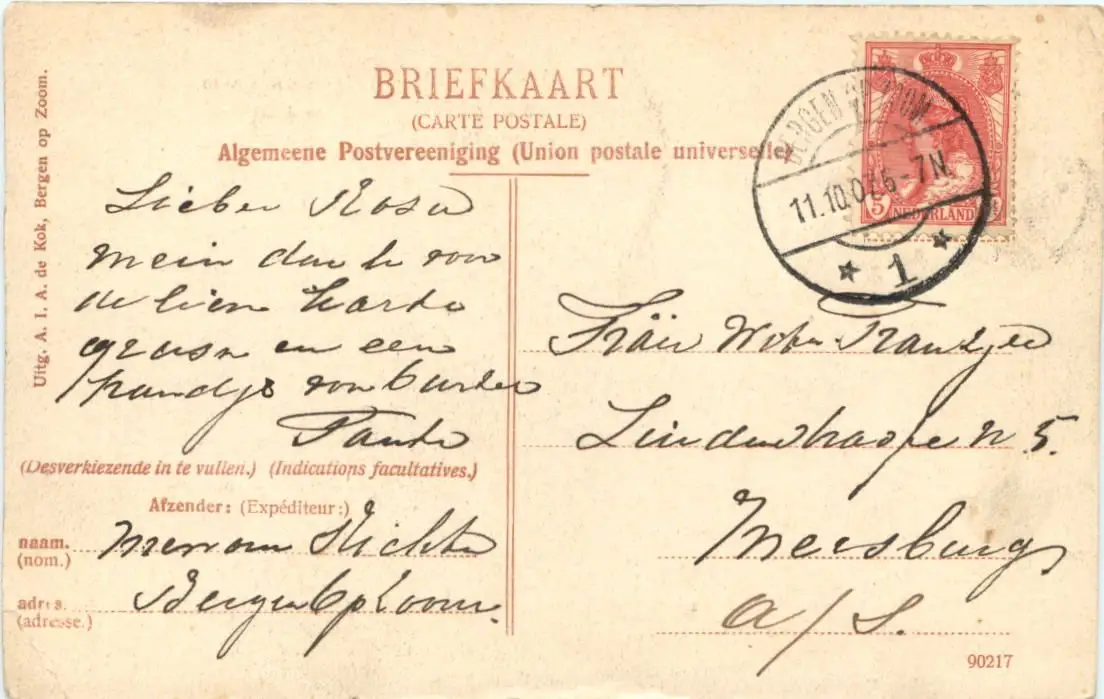 BRIEFKAART
(CARTE POSTALE)
Algemeene Postvereeniging (Union postale universelle)
Uitg. A. I. A. de Kok, Bergen op Zoom.
BERGEN OP ZOOM
11.10.07 6-7N
1
5
NEDERLAND
Lieber Rosa
mein dank von
karte
en een
handje von
Tante
(Desverkiezende in te vullen.) (Indications facultatives.)
Afzender: (Expéditeur:)
naam.
(nom.)
adres.
(adresse.)
Bergen op Zoom.
Lindenstrasse N 5.
Meersburg
a/S.
90217